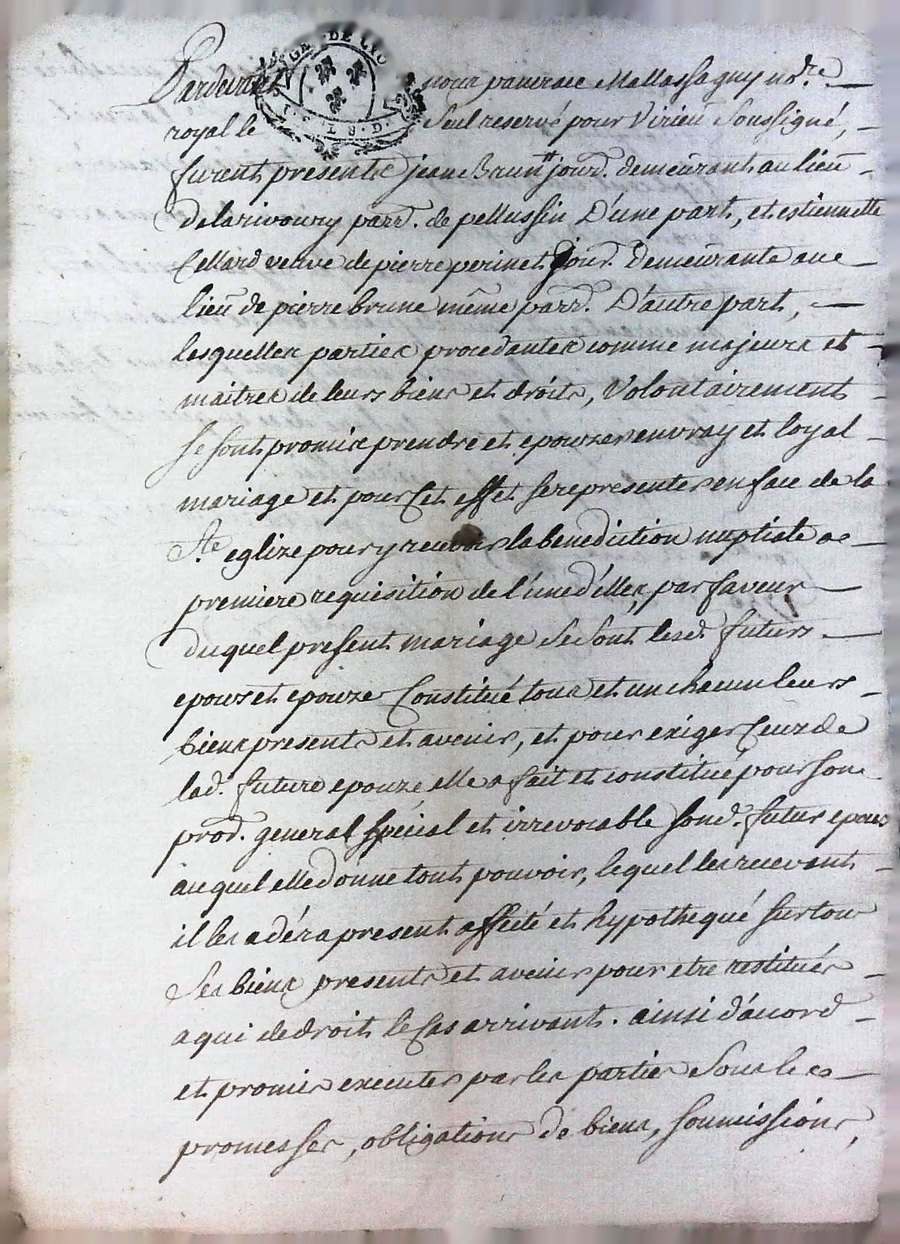 Pardevant nous pancrace Mallassagny no.re
royal le seul reservé pour Virieu Soussigné,
furent presents jean Brun jour.d demeurant au lieu
de larivoury parr. de pellussin D'une part, et estiennette
Cellard veuve de pierre perinet jour.d Demeurante au
lieu de pierre brune même parr. D'autre part,
lesquelles parties procedantes comme majeurs et
maitres de leurs biens et droits, volontairement
se sont promis prendre et epouzer en vray et loyal
mariage et pour cet effet se representer en face de la
S.te eglize pour y recevoir la benediction nuptiale a
premiere requisition de l'une d'elles, par faveur
duquel present mariage se sont lesd. futurs
epoux et epouze Constitué tous et un chacun leurs
biens presents et avenir, et pour exiger Ceux de
lad. future epouze elle a fait et constitué pour son
prod. general special et irrevocable sond. futur epoux
auquel elle donne tout pouvoir, lequel les recevant
il les a dés a present affecté et hypothequé sur tous
ses biens presents et avenir pour etre restitués
a qui de droit le Cas arrivant. ainsi d'acord
et promis executer par les parties sous les
promesses, obligations de biens, soumissions,